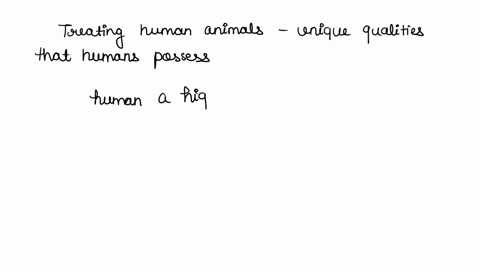 Treating human animals - unique qualities
that humans possess
human a hig